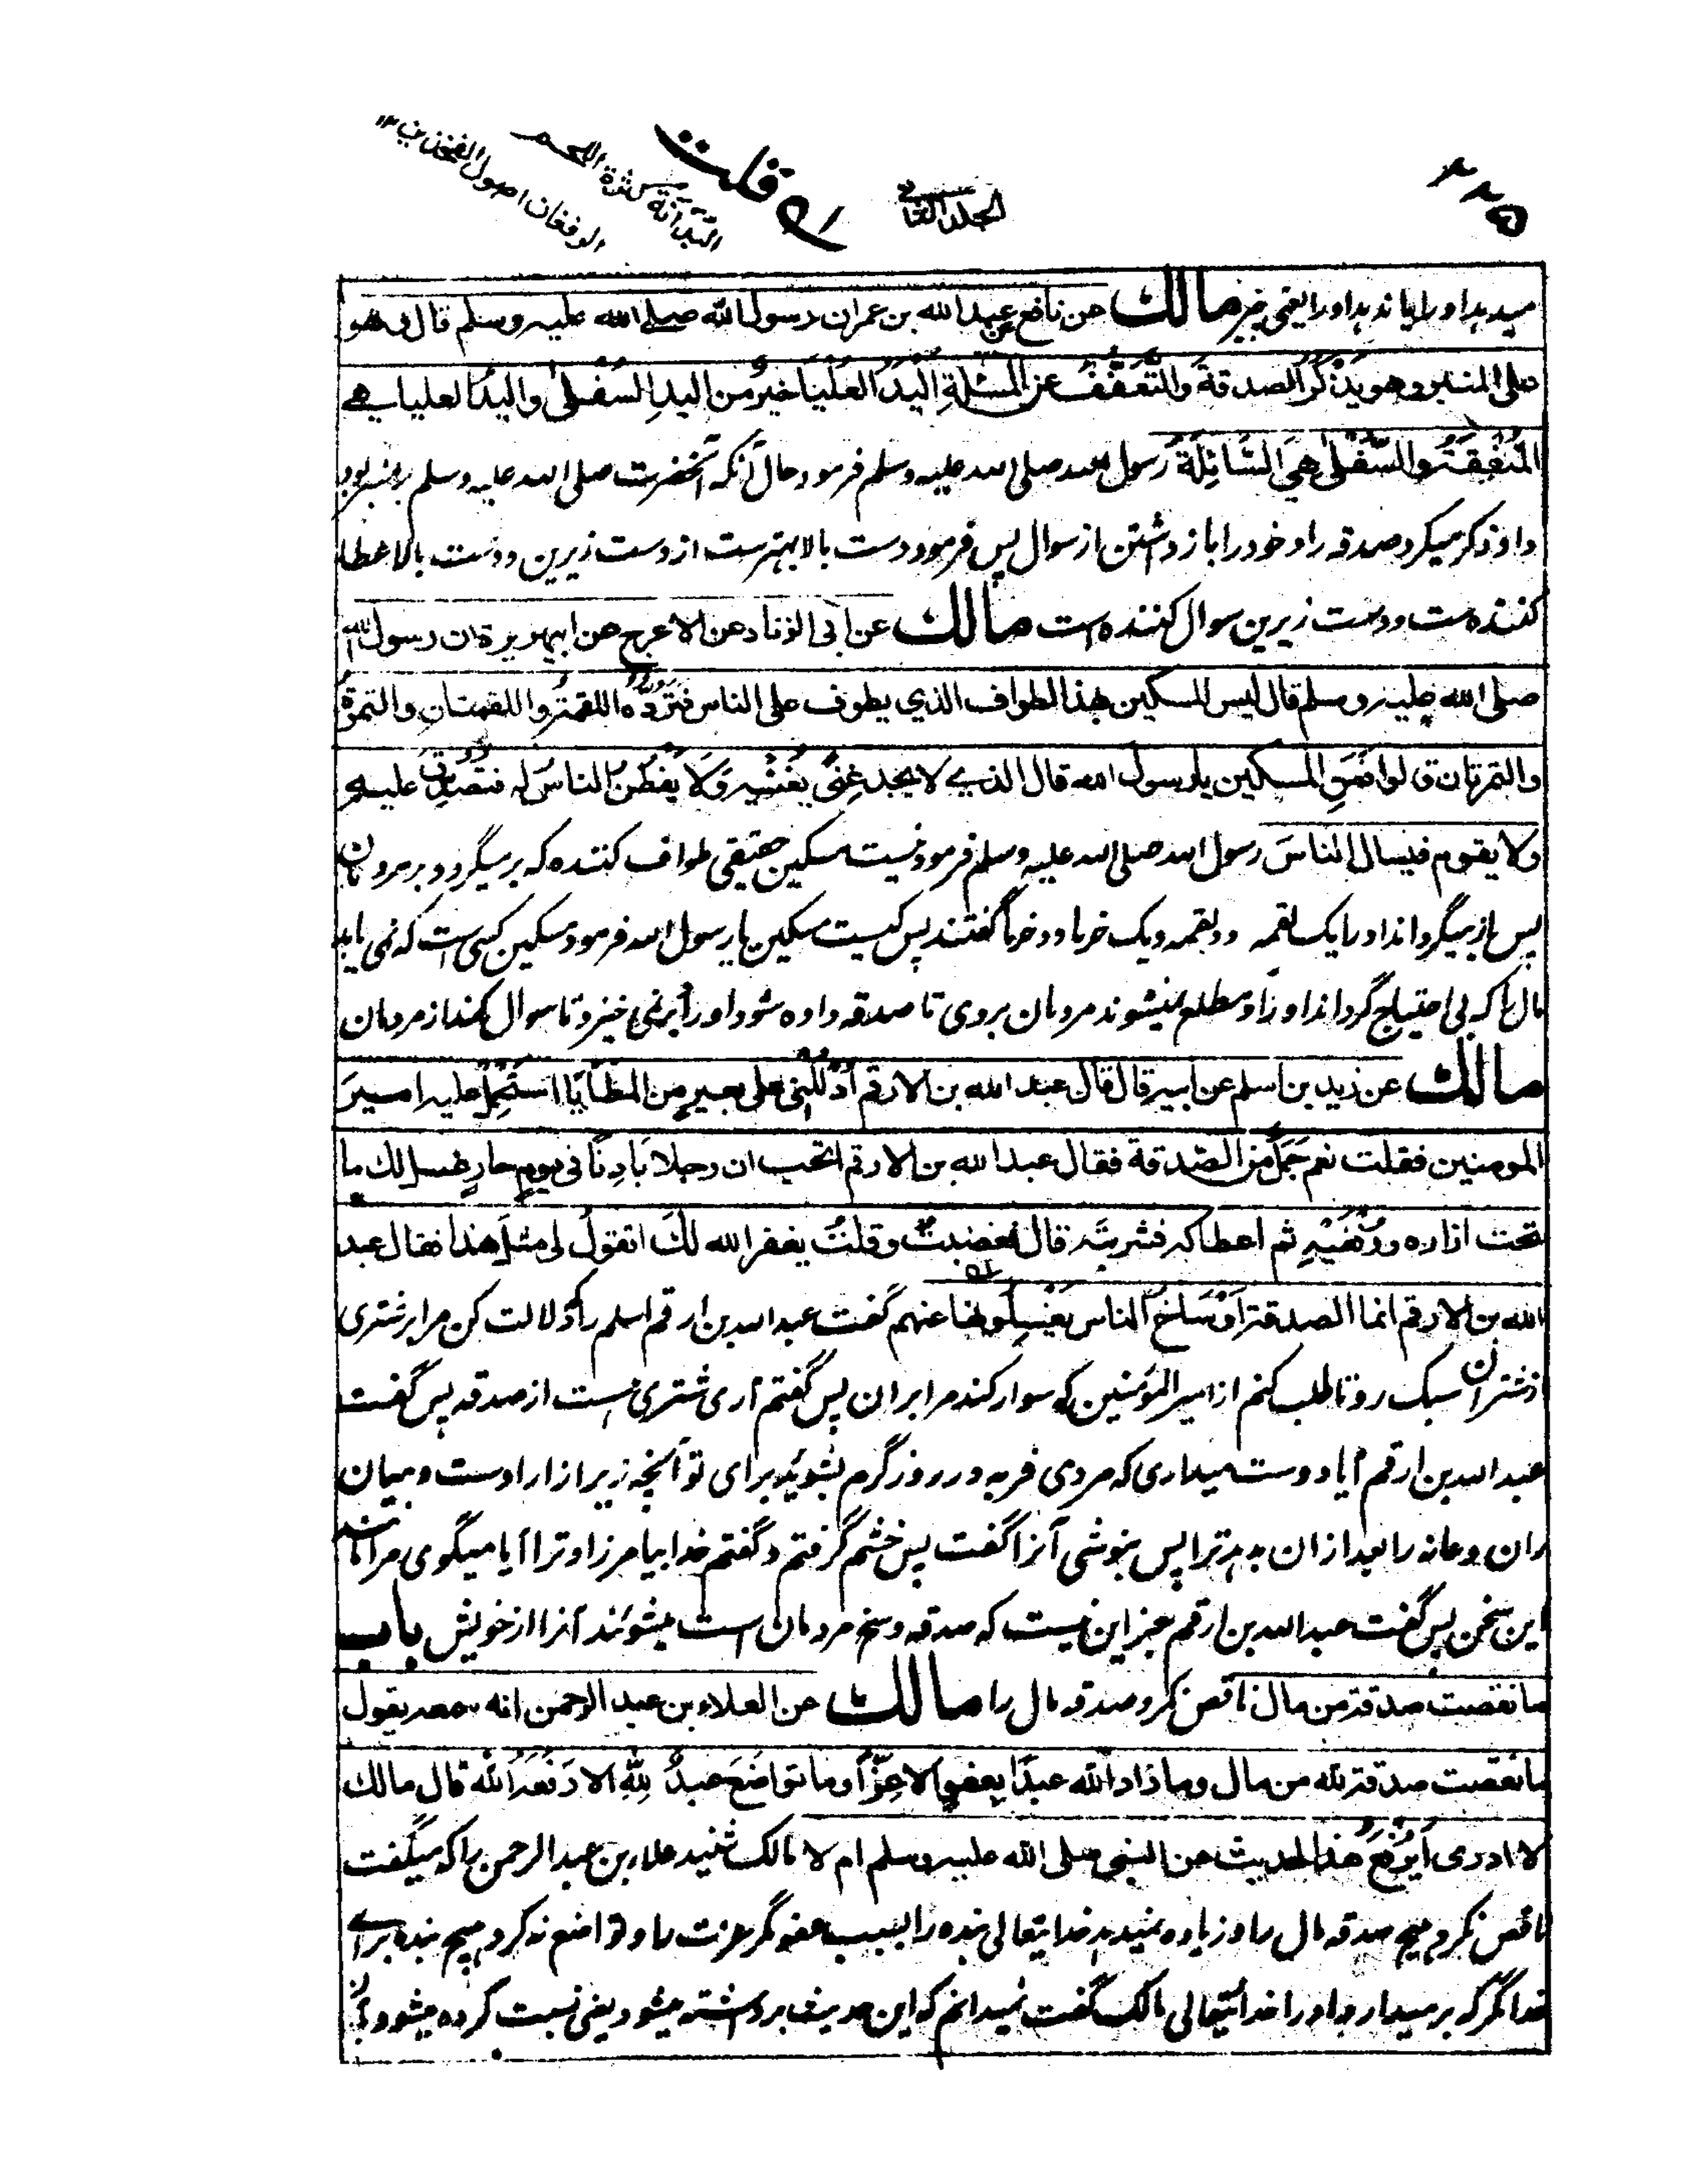 ۲۲۵
الجلد الثانی
میدهد او را یا ندهد او را یعنی چیز مالك عن نافع عن عبد الله بن عمر ان رسول الله صلی الله علیه وسلم قال وهو
علی المنبر وهو یَذْکُرُ الصدقةَ والتَّعَفُّفَ عن المسئلةِ الیَدُ العُلْیَا خیرٌ من الیدِ السُفْلیٰ والیدُ العلیا هی
المُنْفِقَةُ والسُّفْلیٰ هِیَ السَّائِلَةُ رسول الله صلی الله علیه وسلم فرمود حال آنکه آنحضرت صلی الله علیه وسلم بر منبر بود
و او ذکر میکرد صدقه را و خود را باز داشتن از سوال پس فرمود دست بالا بهترست از دست زیرین و دست بالا عطا
کننده ست و دست زیرین سوال کننده است مالك عن ابی الزناد عن الاعرج عن ابی هریرة ان رسول الله
صلی الله علیه وسلم قال لیس المسکین بهذا الطواف الذی یطوف علی الناس فتَرُدُّه اللقمةُ واللقمتانِ والتمرةُ
والتمرتان قالوا فمَنِ المسکین یا رسول الله قال الذی لا یجد غِنًی یُغْنِیه وَلَا یَفْطُنُ الناسُ له فیتصدق علیه
ولا یقوم فیسال الناسَ رسول الله صلی الله علیه وسلم فرمود نیست مسکین حقیقی طواف کننده که بر میگردد بر مردمان
پس باز میگرداند او را یک لقمه و دو لقمه و یک خرما و دو خرما گفتند پس کیست مسکین یا رسول الله فرمود مسکین کسی است که نمی یابد
مال را که بی احتیاج گرداند او را و مطلع نمیشوند مردمان بروی تا صدقه داده شود او را و بر نمی خیزد تا سوال کند از مردمان
مالك عن زید بن اسلم عن ابیه قال قال عبد الله بن الارقم اُدْلُلْنِی علی بعیرٍ من المطَایَا اَستَحْمِلُ علیه امیرَ
المومنین فقلت نعم جَمَلٌ من الصَّدقة فقال عبد الله بن الارقم اتحب ان رجلا بَادِنًا فی یومٍ حارٍ غسل لك ما
تحت ازاره ورُفْغَیْهِ ثم اعطاکه فشربتَه قال فغضبتُ وقلتُ یغفر الله لكَ اتقولُ لی مثلَ هذا فقال عبد
الله بن الارقم انما الصدقة اَوْسَاخُ الناس یَغْسِلُونها عنهم گفت عبد الله بن ارقم اسلم را که دلالت کن مرا بر شتری
از شتران سبک رو تا طلب کنم از امیر المؤمنین که سوار کند مرا بران پس گفتم آری شتری هست از صدقه پس گفت
عبد الله بن ارقم آیا دوست میداری که مردی فربه در روز گرم بشوید برای تو آنچه زیر ازار اوست و میان
ران و عانه را بعد از ان بدهد ترا پس بنوشی آنرا گفت پس خشم گرفتم و گفتم خدا بیامرزاد ترا آیا میگوی مرا مانند
این سخن پس گفت عبد الله بن ارقم جز این نیست که صدقه وسخ مردمان است میشویند آنرا از خویش باب
ما نقصت صدقة من مال ناقص نکرد صدقه مال را مالك عن العلاء بن عبد الرحمن انه سمعه یقول
ما نقصت صدقة لله من مال وما زاد الله عبدًا بعفوٍ الا عِزًّا وما تواضَعَ عبدٌ لِلّٰهِ الا رَفَعَهُ اللهُ قال مالك
لا ادری اَیُرْفَعُ هذا الحدیث عن النبی صلی الله علیه وسلم ام لا مالک شنید علاء بن عبد الرحمن را که میگفت
ناقص نکرد هیچ صدقه مال را و زیاده نمیدهد خدا یتعالی بنده را بسبب عفو مگر عزت را و تواضع نه کرد هیچ بنده برای
خدا مگر که بر میدارد او را خدا یتعالی مالک گفت نمیدانم که این حدیث برداشته میشود یعنی نسبت کرده میشود بآن